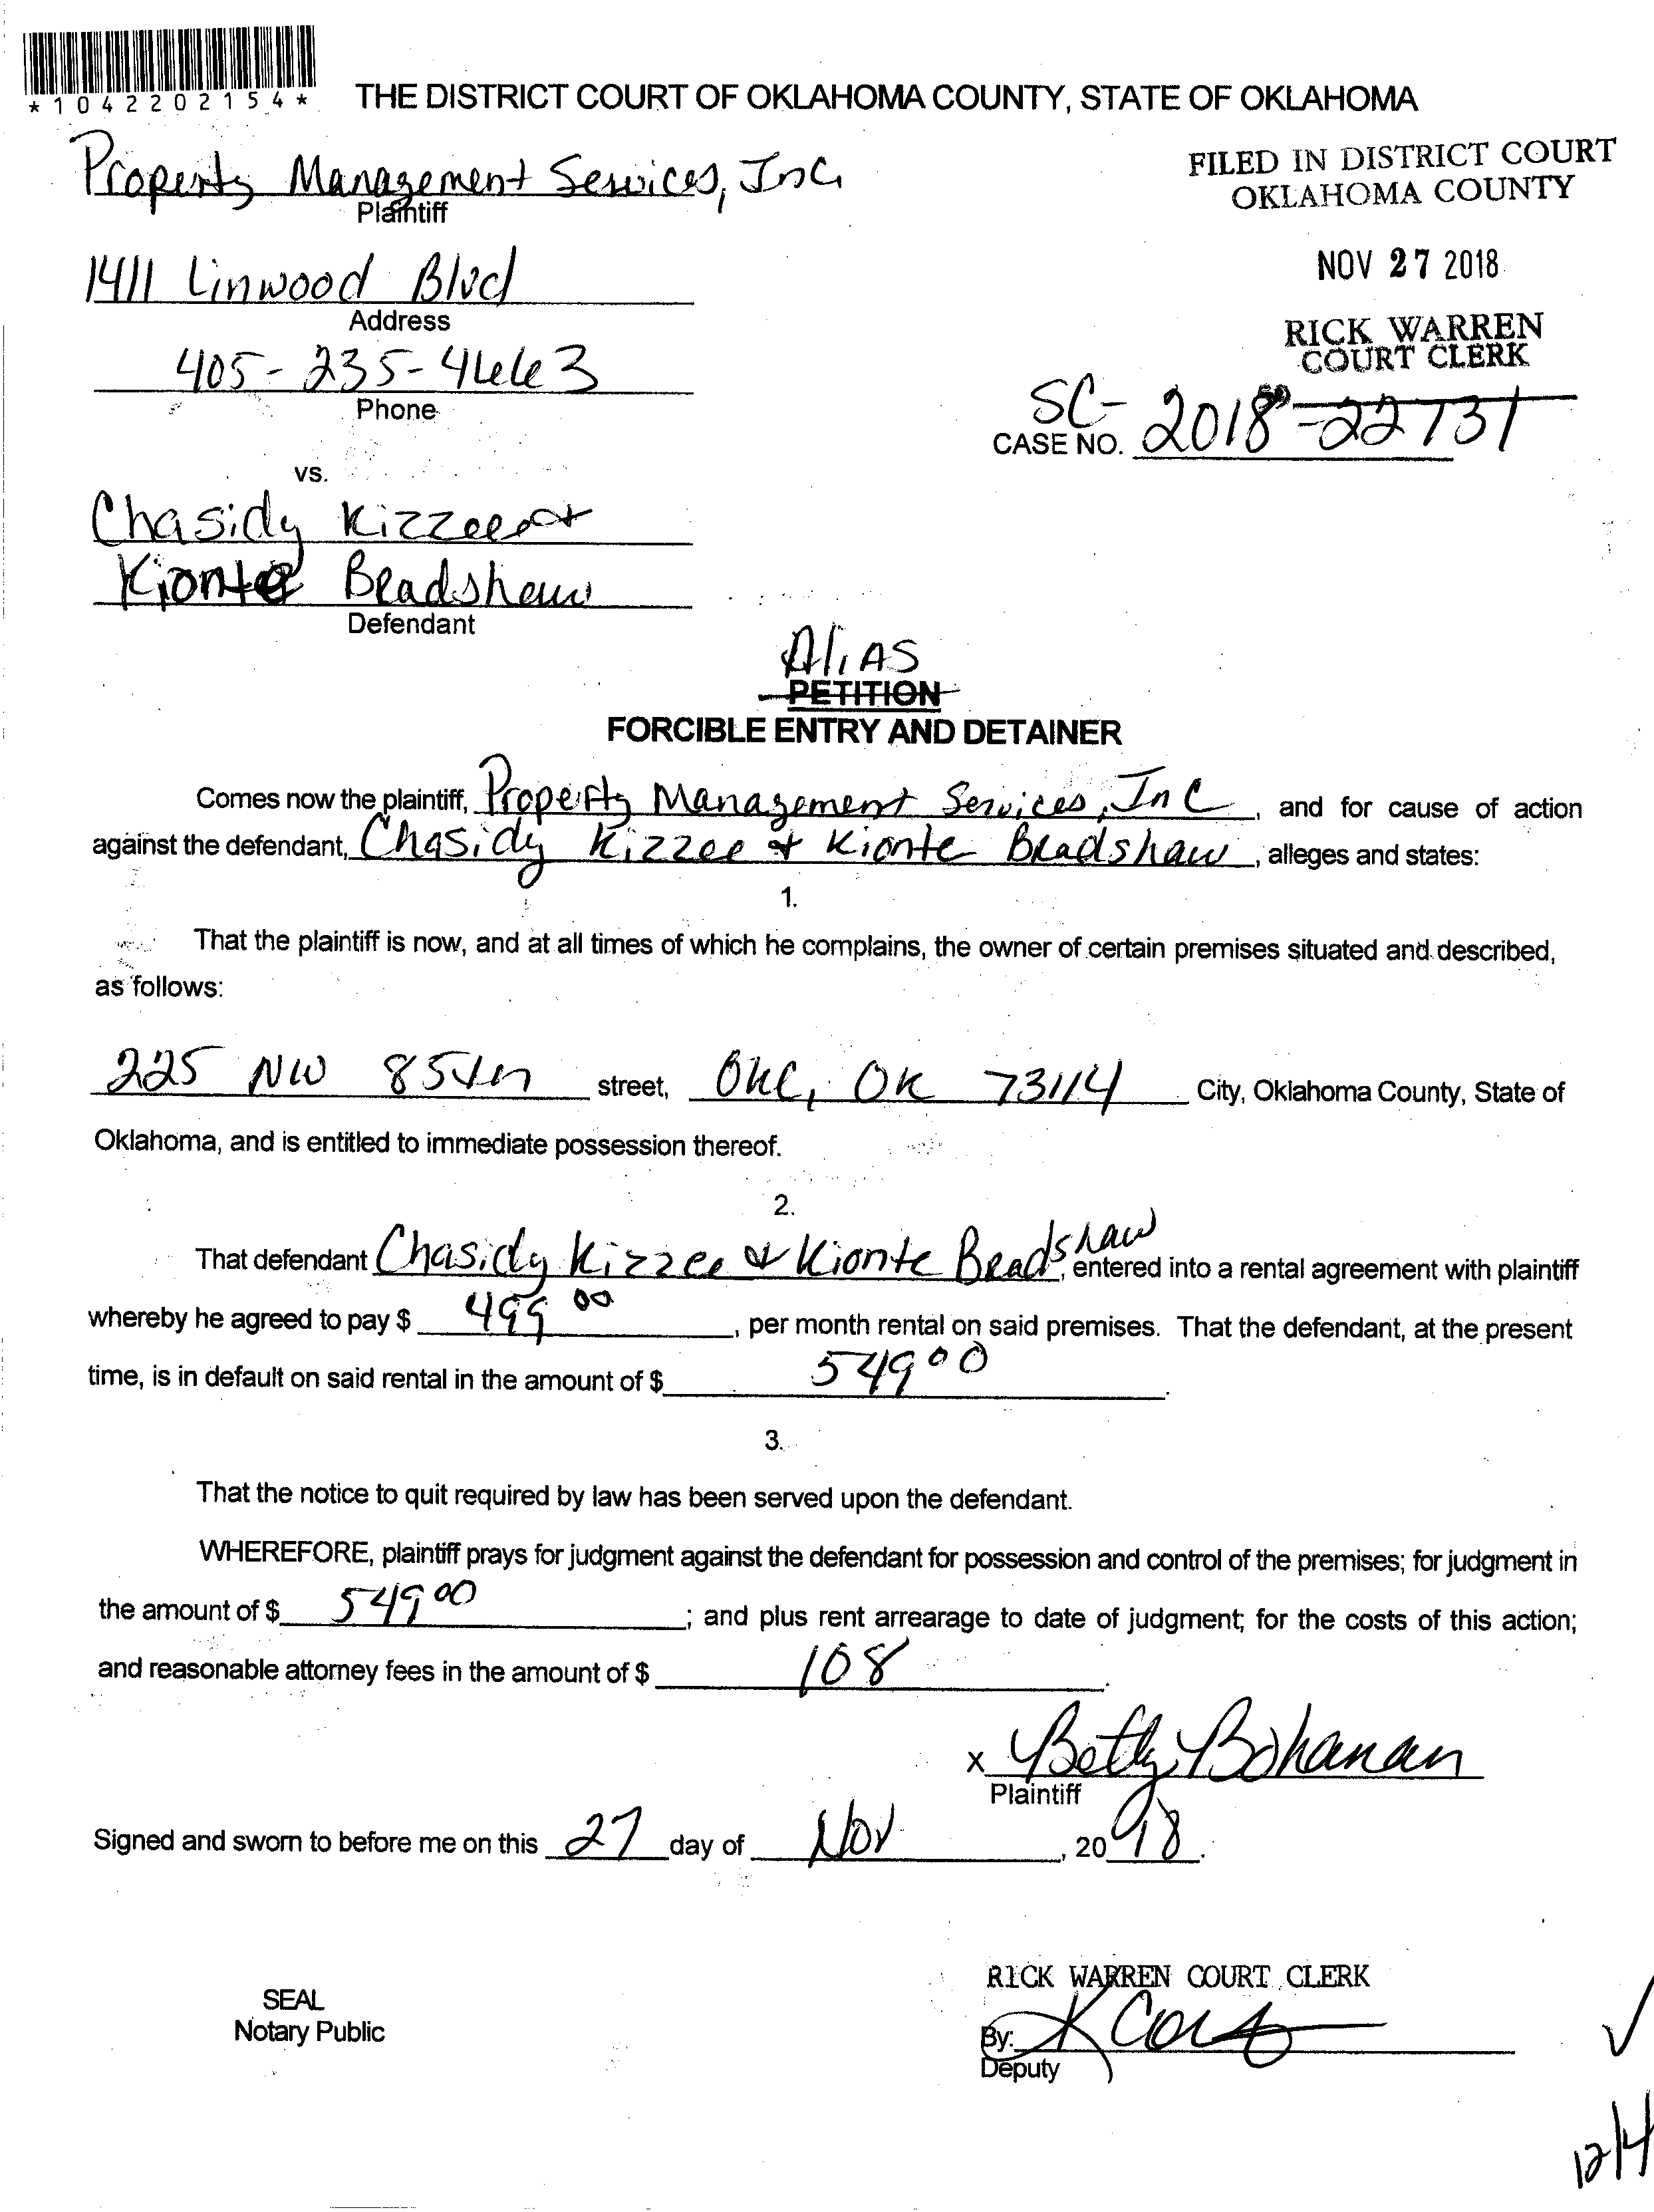 *1042202154*
THE DISTRICT COURT OF OKLAHOMA COUNTY, STATE OF OKLAHOMA
Property Management Services, Inc.
Plaintiff
FILED IN DISTRICT COURT
OKLAHOMA COUNTY
1411 Linwood Blvd
Address
NOV 27 2018
405-235-4663
Phone
RICK WARREN
COURT CLERK
SC-
CASE NO. 2018-22731
vs.
Chasidy Kizzee &
Kionte Bradshaw
Defendant
Alias
PETITION
FORCIBLE ENTRY AND DETAINER
Comes now the plaintiff, Property Management Services, Inc, and for cause of action
against the defendant, Chasidy Kizzee & Kionte Bradshaw, alleges and states:
1.
That the plaintiff is now, and at all times of which he complains, the owner of certain premises situated and described,
as follows:
225 NW 85th street, OKC, OK 73114 City, Oklahoma County, State of
Oklahoma, and is entitled to immediate possession thereof.
2.
That defendant Chasidy Kizzee & Kionte Bradshaw, entered into a rental agreement with plaintiff
whereby he agreed to pay $ 499 00, per month rental on said premises. That the defendant, at the present
time, is in default on said rental in the amount of $ 549 00.
3.
That the notice to quit required by law has been served upon the defendant.
WHEREFORE, plaintiff prays for judgment against the defendant for possession and control of the premises; for judgment in
the amount of $ 549 00; and plus rent arrearage to date of judgment; for the costs of this action;
and reasonable attorney fees in the amount of $ 108.
x Betty Bohanan
Plaintiff
Signed and sworn to before me on this 27 day of Nov, 2018.
RICK WARREN COURT CLERK
SEAL
Notary Public
By:
Deputy
12/4